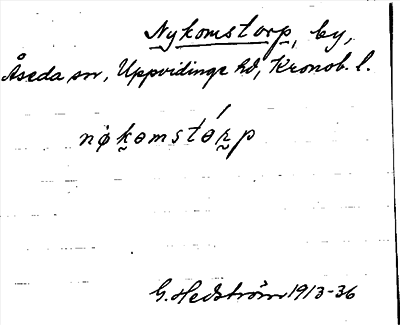 Nykomstorp, by,
Åseda sn, Uppvidinge hd, Kronob. l.
nøk̰ɵmstɵ́r̰p
G. Hedström 1913-36